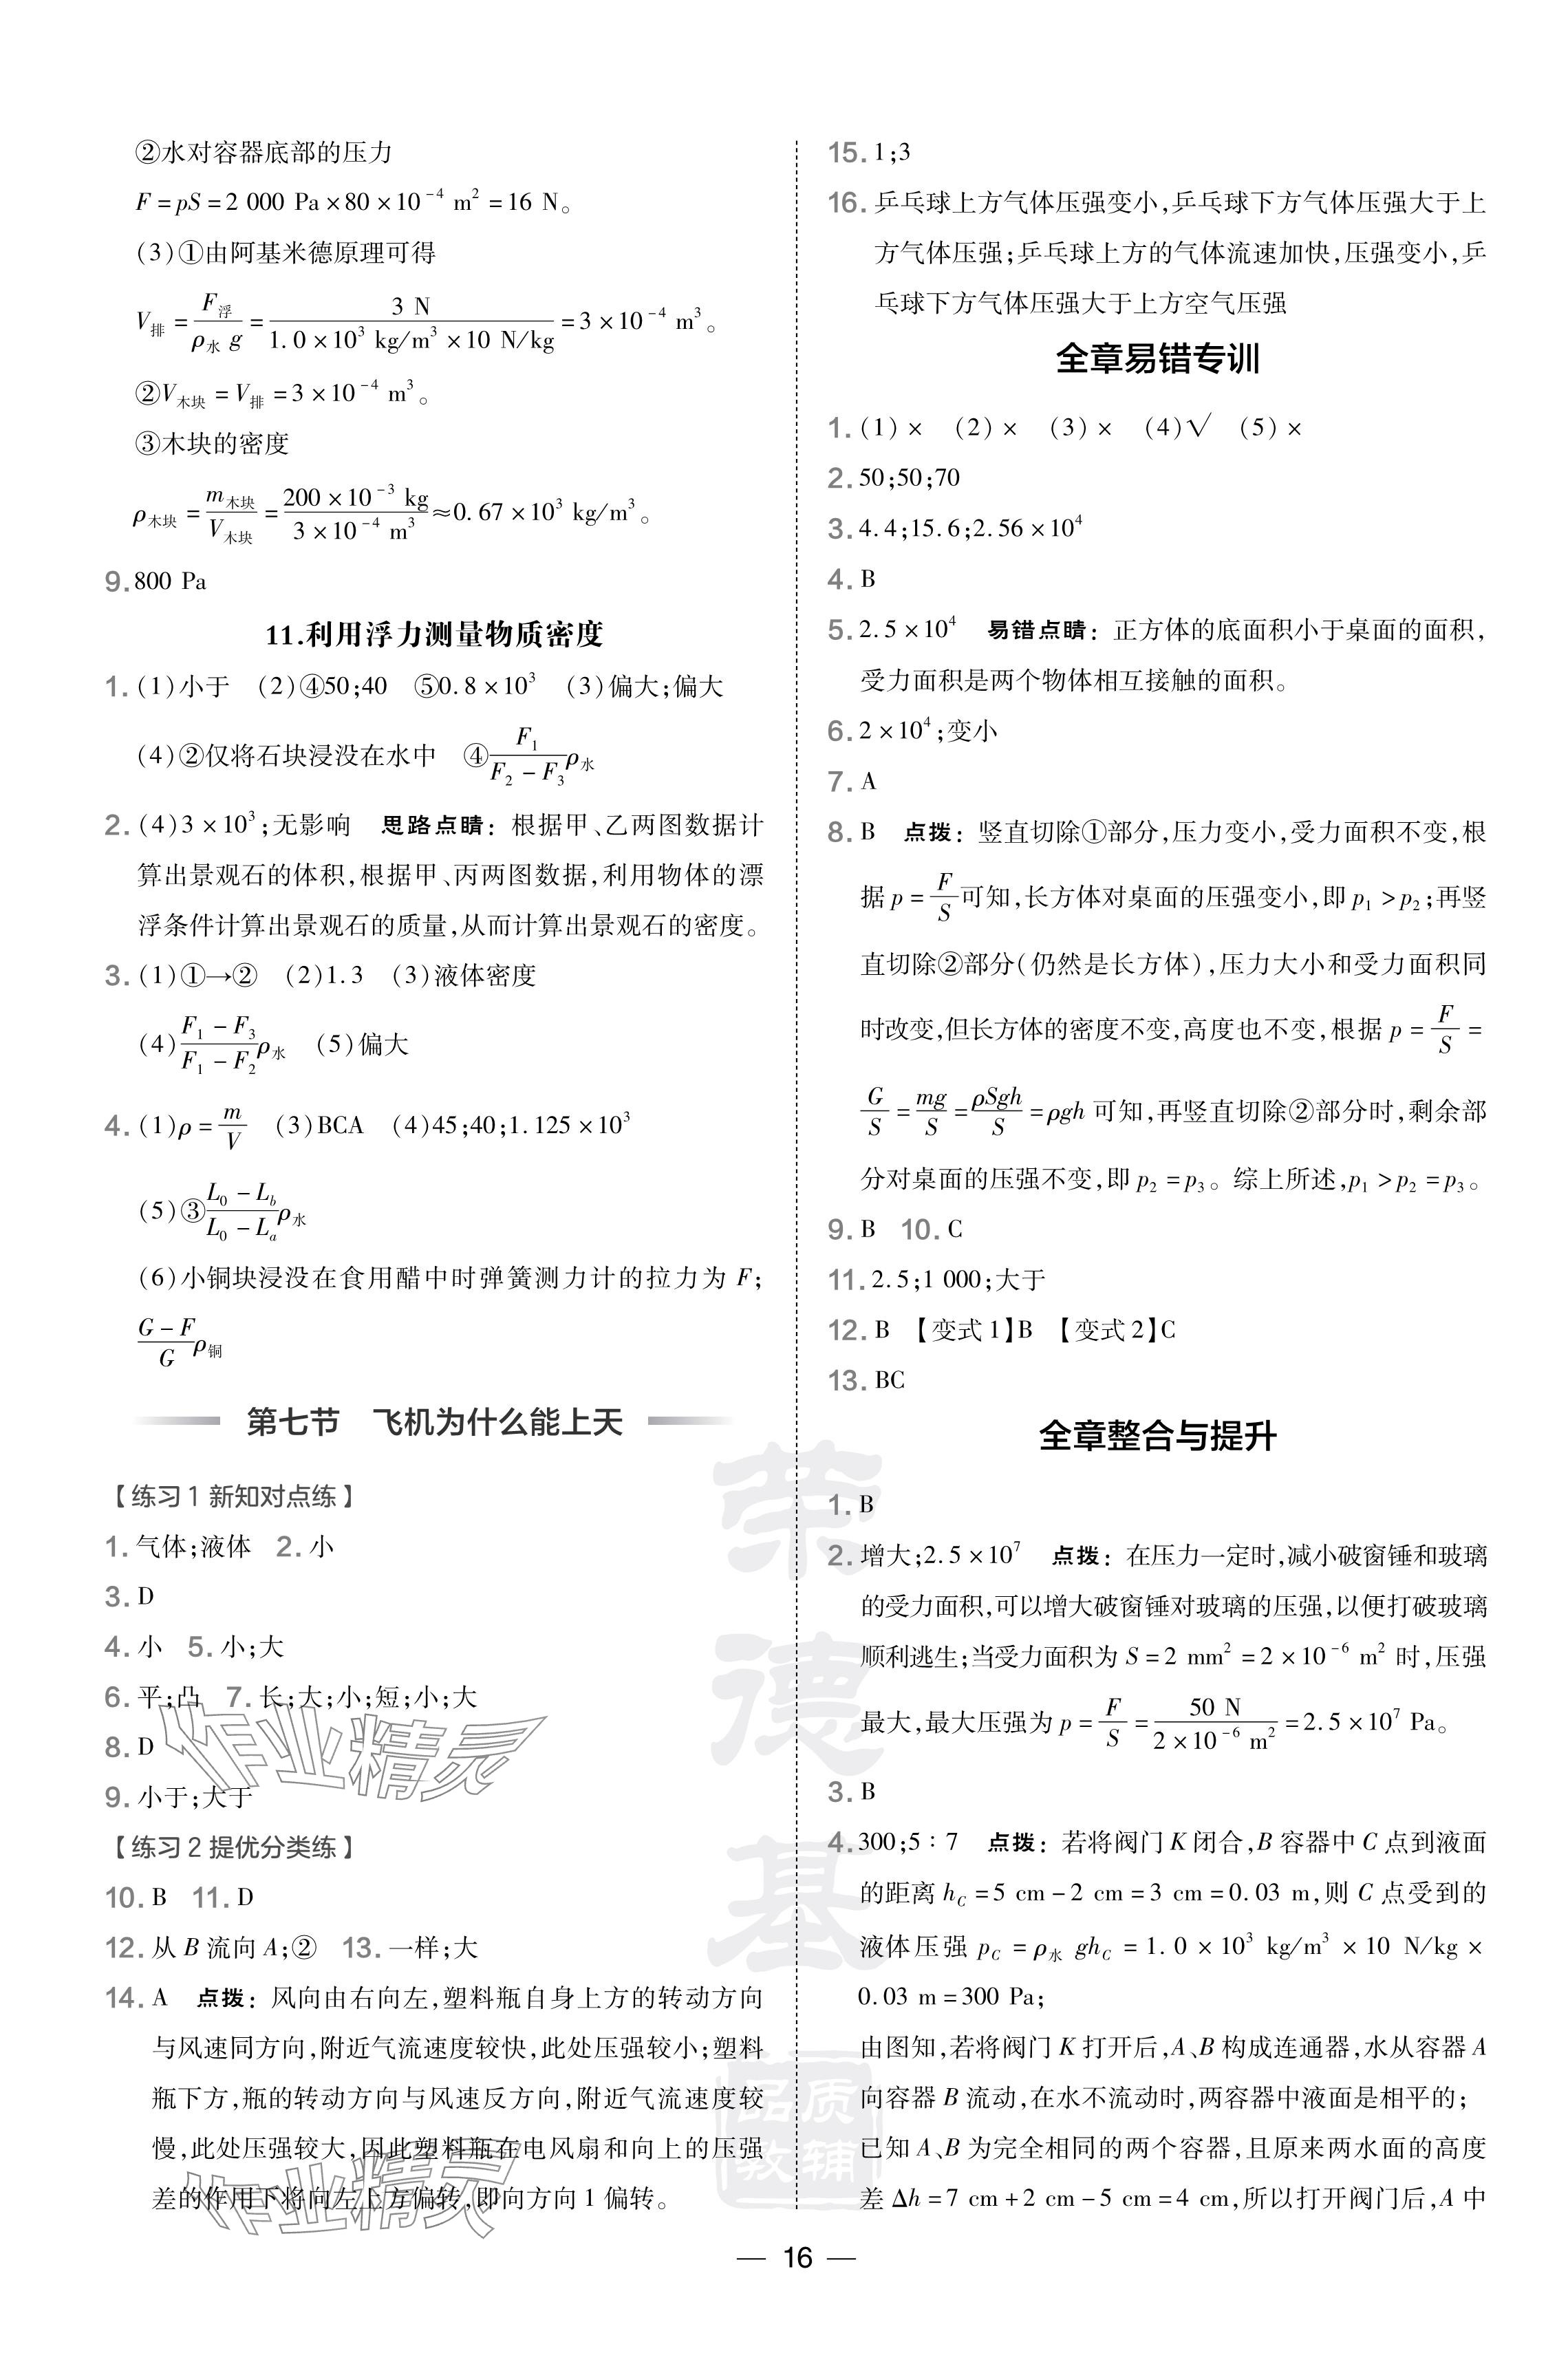 ②水对容器底部的压力
F=pS=2 000 Pa×80×10⁻⁴ m²=16 N。
(3)①由阿基米德原理可得
V排=F浮/(ρ水 g)=3 N/(1.0×10³ kg/m³×10 N/kg)=3×10⁻⁴ m³。
②V木块=V排=3×10⁻⁴ m³。
③木块的密度
ρ木块=m木块/V木块=(200×10⁻³ kg)/(3×10⁻⁴ m³)≈0.67×10³ kg/m³。
9.800 Pa
11.利用浮力测量物质密度
1.(1)小于 (2)④50;40 ⑤0.8×10³ (3)偏大;偏大
(4)②仅将石块浸没在水中 ④F₁/(F₂-F₃)ρ水
2.(4)3×10³;无影响 思路点睛:根据甲、乙两图数据计
算出景观石的体积,根据甲、丙两图数据,利用物体的漂
浮条件计算出景观石的质量,从而计算出景观石的密度。
3.(1)①→② (2)1.3 (3)液体密度
(4)(F₁-F₃)/(F₁-F₂)ρ水 (5)偏大
4.(1)ρ=m/V (3)BCA (4)45;40;1.125×10³
(5)③(L₀-L_b)/(L₀-L_a)ρ水
(6)小铜块浸没在食用醋中时弹簧测力计的拉力为 F;
(G-F)/G ρ铜
第七节 飞机为什么能上天
【练习1 新知对点练】
1.气体;液体 2.小
3.D
4.小 5.小;大
6.平;凸 7.长;大;小;短;小;大
8.D
9.小于;大于
【练习2 提优分类练】
10.B 11.D
12.从 B 流向 A;② 13.一样;大
14.A 点拨:风向由右向左,塑料瓶自身上方的转动方向
与风速同方向,附近气流速度较快,此处压强较小;塑料
瓶下方,瓶的转动方向与风速反方向,附近气流速度较
慢,此处压强较大,因此塑料瓶在电风扇和向上的压强
差的作用下将向左上方偏转,即向方向 1 偏转。
15.1;3
16.乒乓球上方气体压强变小,乒乓球下方气体压强大于上
方气体压强;乒乓球上方的气体流速加快,压强变小,乒
乓球下方气体压强大于上方空气压强
全章易错专训
1.(1)× (2)× (3)× (4)√ (5)×
2.50;50;70
3.4.4;15.6;2.56×10⁴
4.B
5.2.5×10⁴ 易错点睛:正方体的底面积小于桌面的面积,
受力面积是两个物体相互接触的面积。
6.2×10⁴;变小
7.A
8.B 点拨:竖直切除①部分,压力变小,受力面积不变,根
据 p=F/S可知,长方体对桌面的压强变小,即 p₁>p₂;再竖
直切除②部分(仍然是长方体),压力大小和受力面积同
时改变,但长方体的密度不变,高度也不变,根据 p=F/S=
G/S=mg/S=ρSgh/S=ρgh 可知,再竖直切除②部分时,剩余部
分对桌面的压强不变,即 p₂=p₃。综上所述,p₁>p₂=p₃。
9.B 10.C
11.2.5;1 000;大于
12.B 【变式1】B 【变式2】C
13.BC
全章整合与提升
1.B
2.增大;2.5×10⁷ 点拨:在压力一定时,减小破窗锤和玻璃
的受力面积,可以增大破窗锤对玻璃的压强,以便打破玻璃
顺利逃生;当受力面积为 S=2 mm²=2×10⁻⁶ m² 时,压强
最大,最大压强为 p=F/S=50 N/(2×10⁻⁶ m²)=2.5×10⁷ Pa。
3.B
4.300;5∶7 点拨:若将阀门 K 闭合,B 容器中 C 点到液面
的距离 h_C=5 cm-2 cm=3 cm=0.03 m,则 C 点受到的
液体压强 p_C=ρ水 gh_C=1.0×10³ kg/m³×10 N/kg×
0.03 m=300 Pa;
由图知,若将阀门 K 打开后,A、B 构成连通器,水从容器 A
向容器 B 流动,在水不流动时,两容器中液面是相平的;
已知 A、B 为完全相同的两个容器,且原来两水面的高度
差 Δh=7 cm+2 cm-5 cm=4 cm,所以打开阀门后,A 中
荣德基
品质
教辅
作业精灵
作业精灵
— 16 —